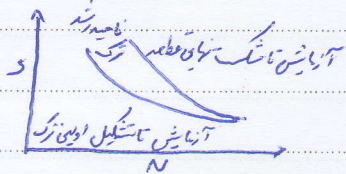 ناحیه رشد
ترک
آزمایش تا شکست نهایی قطعه
S
آزمایش تا تشکیل اولین ترک
N